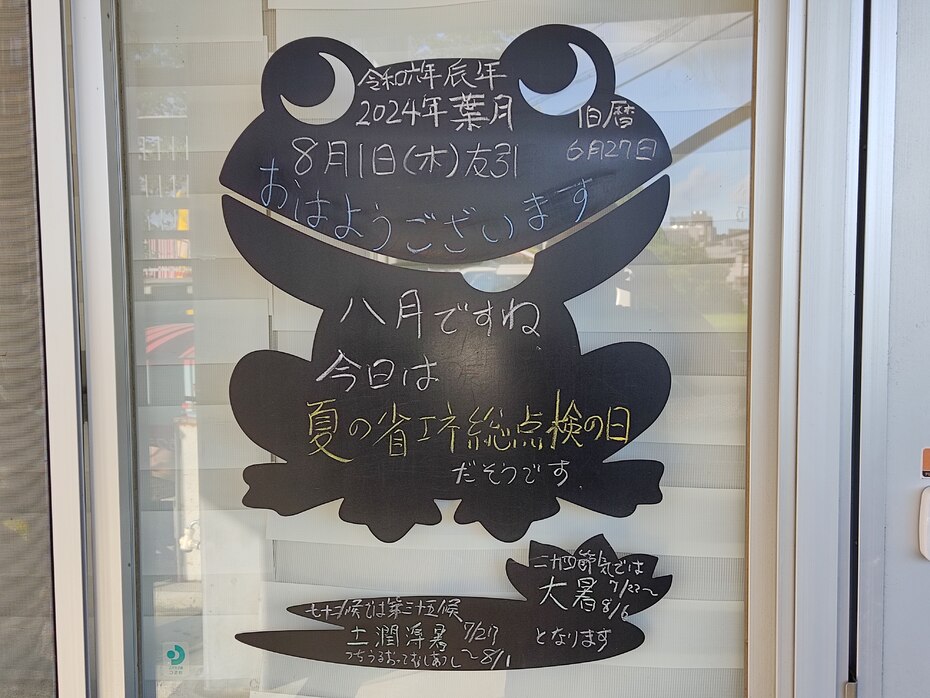 令和六年辰年
2024年葉月
旧暦
8月1日(木)友引
6月27日
おはようございます
八月ですね
今日は
夏の省エネ総点検の日
だそうです
二十四節気では
大暑 7/22〜
8/6
となります
七十二候では第三十五候
土潤溽暑 7/27
つちうるおってむしあつし 〜8/1